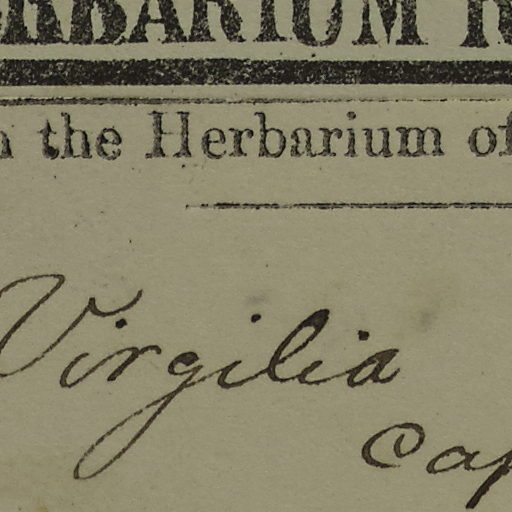 ERBARIUM R
n the Herbarium of
Virgilia
cap